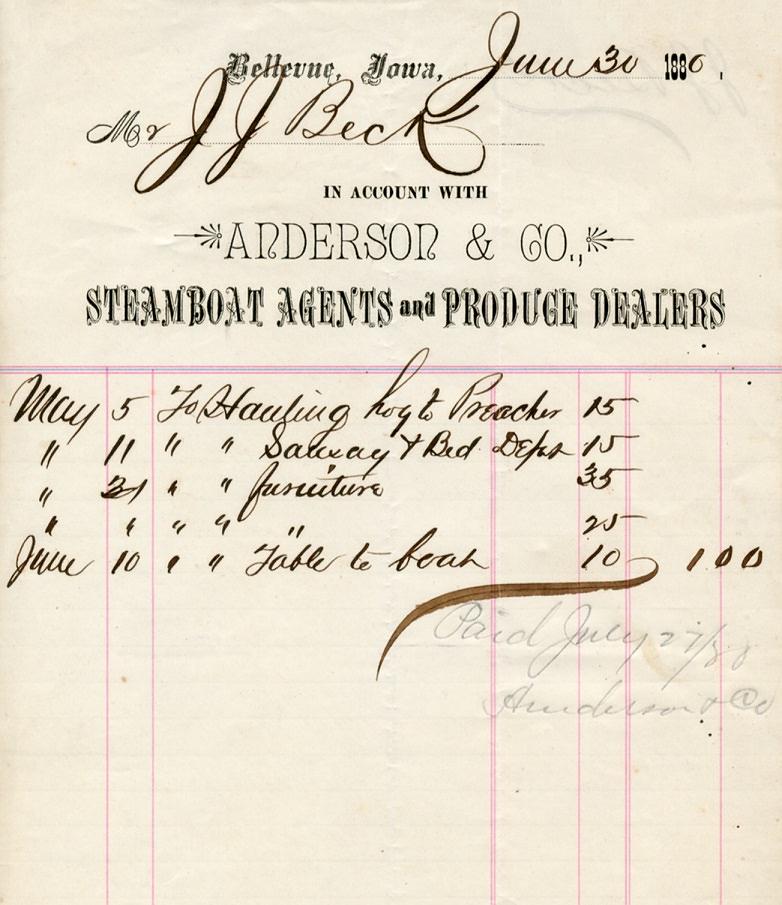 Bellevue, Iowa, June 30 1880.
Mr J J Beck
IN ACCOUNT WITH
ANDERSON & CO.,
STEAMBOAT AGENTS and PRODUCE DEALERS
May 5 To Hauling to Preacher 15
" 11 " " & Bed 15
" 21 " " furniture 35
" " " " " 25
June 10 " " Table to boat 10 100
Paid July 27/80
Anderson & Co